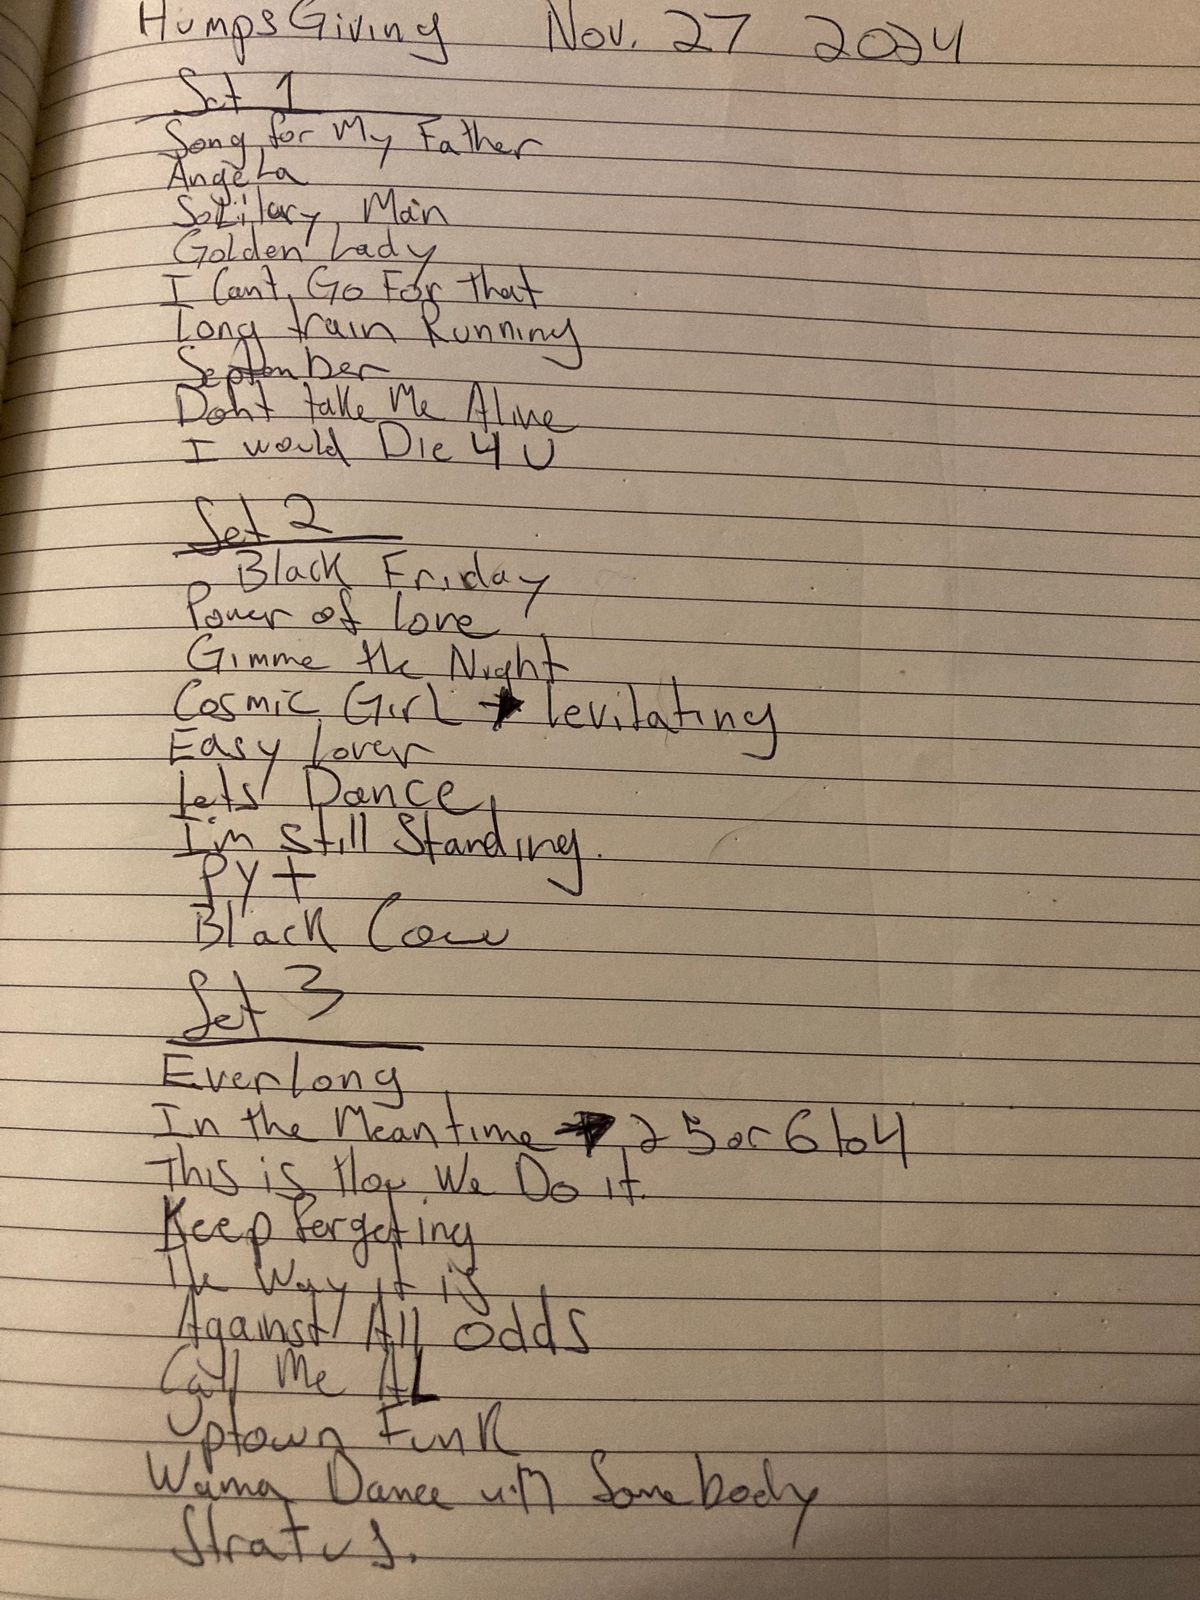 HumpsGiving Nov. 27 2024
Set 1
Song for My Father
Angela
Solilary Man
Golden Lady
I Cant Go For That
Long train Running
September
Dont take Me Alive
I would Die 4 U
Set 2
Black Friday
Power of love
Gimme the Night
Cosmic Girl → levitating
Easy lover
Lets Dance
I'm still Standing.
PYt
Black Cow
Set 3
Everlong
In the Meantime → 25 or 6 to 4
This is How We Do it.
Keep Fergeting
The Way it is
Against All odds
Call Me AL
Uptown Funk
Wanna Dance with Somebody
Stratus.